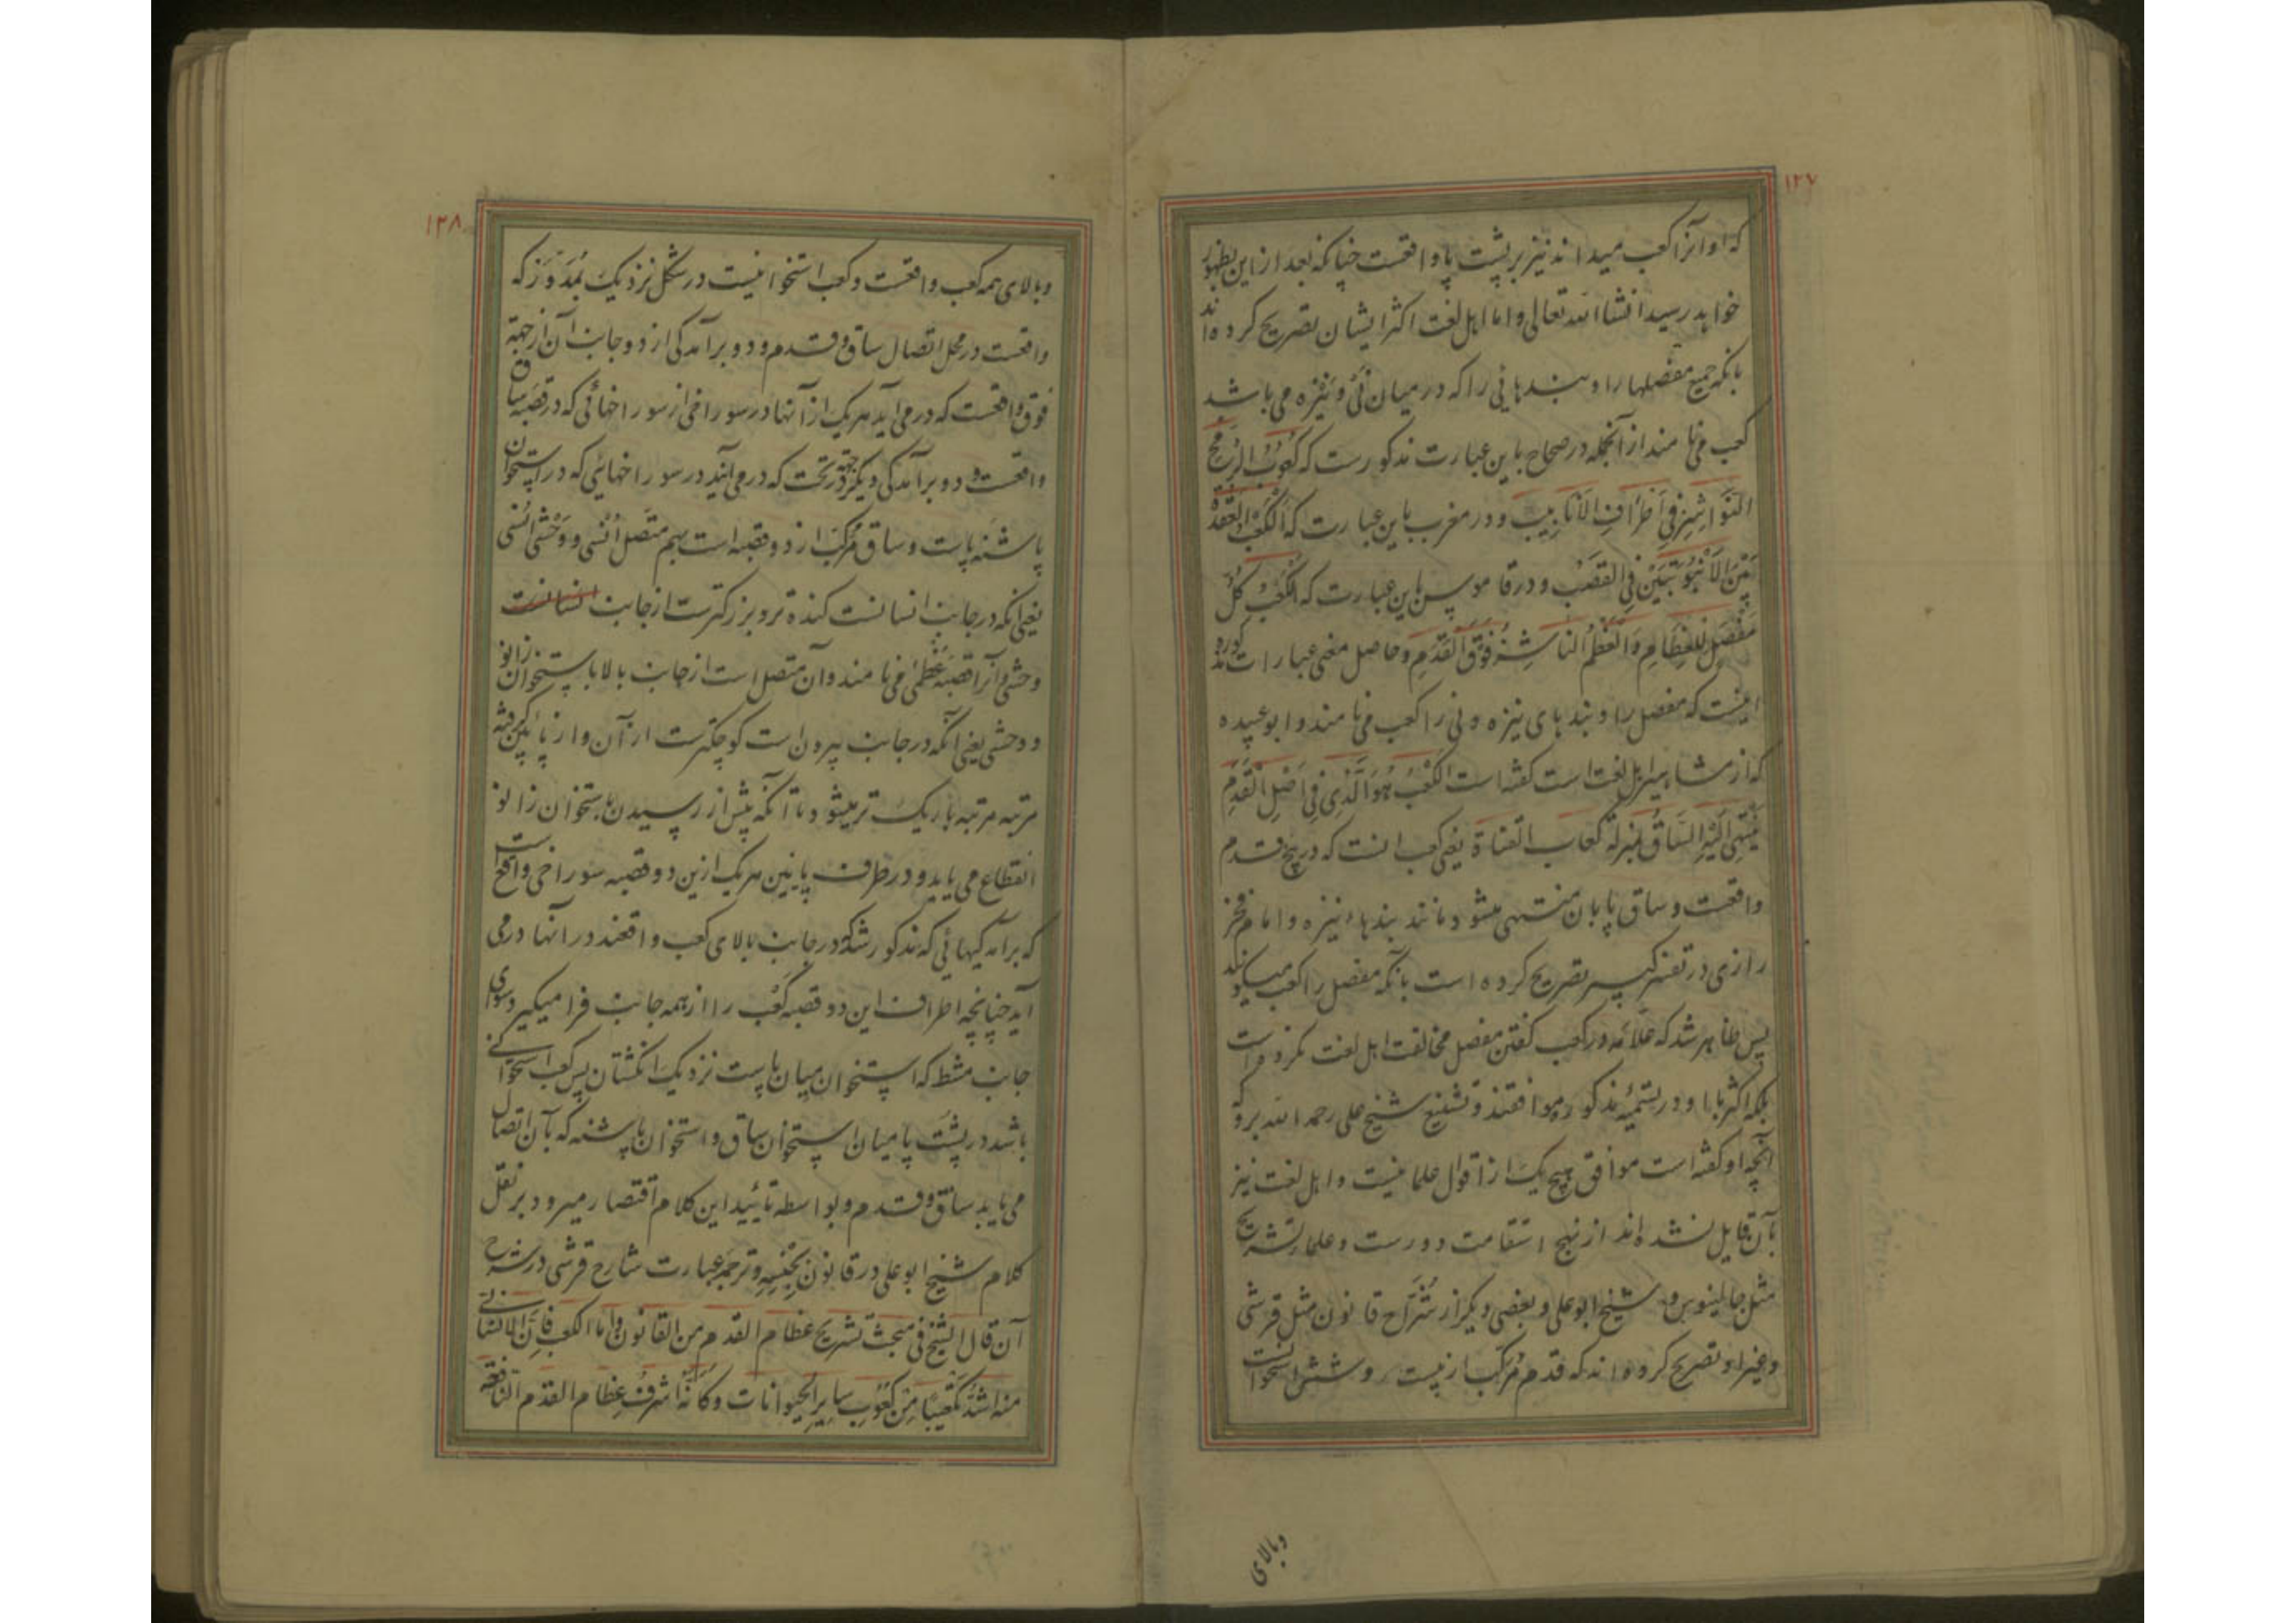 ۱۲۷
که او آنرا کعب میداند نیز بر پشت پا واقعست چنانکه بعد ازاین بظهور
خواهد رسید انشاالله تعالی و اما اهل لغت اکثر ایشان تصریح کرده‌اند
بانکه جمیع مفصلها را و بندهایی را که در میان نی و نیزه می باشد
کعب می نامند از آنجمله در صحاح باین عبارت مذکورست که کُعُوبُ الرُّمح
النَّوَاشِزُ فِی اَطرَافِ الاَنَابِیبِ و در مغرب باین عبارت که الکَعبُ العُقدَةُ
بَینَ الاُنبُوبَتَینِ فِی القَصَبِ و در قاموس باین عبارت که الکَعبُ کُلُّ
مَفصَلٍ لِلعِظَامِ وَالعَظمُ النَاشِزُ فَوقَ القَدَمِ و حاصل معنی عبارات مذکوره
اینست که مفصل را و بندهای نیزه و نی را کعب می نامند و ابو عبیده
که از مشاهیر اهل لغت است گفته است الکَعبُ هُوَ الَّذِی فِی اَصلِ القَدَمِ
یَنتَهِی اِلَیهِ السَّاقُ بمنزلة کعاب القناة یعنی کعب انست که در بیخ قدم
واقعست و ساق پا بان منتهی میشود مانند بندهاء نیزه و امام فخر
رازی در تفسیر کبیر تصریح کرده است بانکه مفصل را کعب میگویند
پس ظاهر شد که علّامه در کعب گفتن مفصل مخالفت اهل لغت نکرده است
بلکه اکثر با او در تسمیهٔ مذکوره موافقند و تشنیع شیخ علی رحمه الله برو که
آنچه او گفته است موافق هیچ یک از اقوال علما نیست و اهل لغت نیز
بآن قایل نشده اند از نهج استقامت دورست و علماء تشریح
مثل جالینوس و شیخ ابو علی و بعضی دیگر از شُرّاح قانون مثل قرشی
و غیر او تصریح کرده اند که قدم مُرکّب از بیست و شش استخوانست
وبالای
۱۲۸
وبالای همه کعب واقعست و کعب استخوانیست در شکل نزدیک بمُدَوَّر که
واقعست در محل اتصال ساق و قدم و دو برآمدگی از دو جانب آن از جهة
فوق واقعست که در می آید هر یک از آنها در سوراخی از سوراخهائی که در قصبهٔ ساق
واقعست و دو برآمدگی دیگر در جهة تحت که در می آید در سوراخهائی که در استخوان
پاشنه پاست و ساق مُرکّب از دو قصبه است بهم متّصل اُنسی و وَحشی اُنسی
یعنی انکه در جانب انسانست کنده تر و بزرگترست از جانب انسانست
وحشی و آنرا قصبهٔ عُظمیٰ می نامند و آن متصل است از جانب بالا با استخوان زانو
و وحشی یعنی آنکه در جانب بیرون است کوچکترست از آن و از پائین گرفته
مرتبه مرتبه باریک تر میشود تا آنکه پیش از رسیدن باستخوان زانو
انقطاع می یابد و در طرف پایین هر یک ازین دو قصبه سوراخی واقع است
که برآمدگیهائی که مذکور شد که در جانب بالای کعب واقعند در آنها درمی
آید چنانچه اطراف این دو قصبه کَعب را از همه جانب فرا میگیرد سوای
جانب مشط که استخوان میان پاست نزدیک انگشتان پس کعب استخوانی
باشد در پشت پا میان استخوان ساق و استخوان پاشنه که بآن اتصال
می یابد ساق و قدم و بواسطه تأیید این کلام اقتصار میرود بر نقل
کلام شیخ ابو علی در قانون بجنسه و ترجمهٔ عبارت شارح قرشی در شرح
آن قال الشیخ فی مبحث تشریح عظام القدم من القانون و اما الکعب فاِنَّ الانسانی
منه اشدُّ تکعیبًا مِن کُعُوبِ سایرِ الحیوانات و کانّهُ اشرفُ عِظامِ القدم النافعة